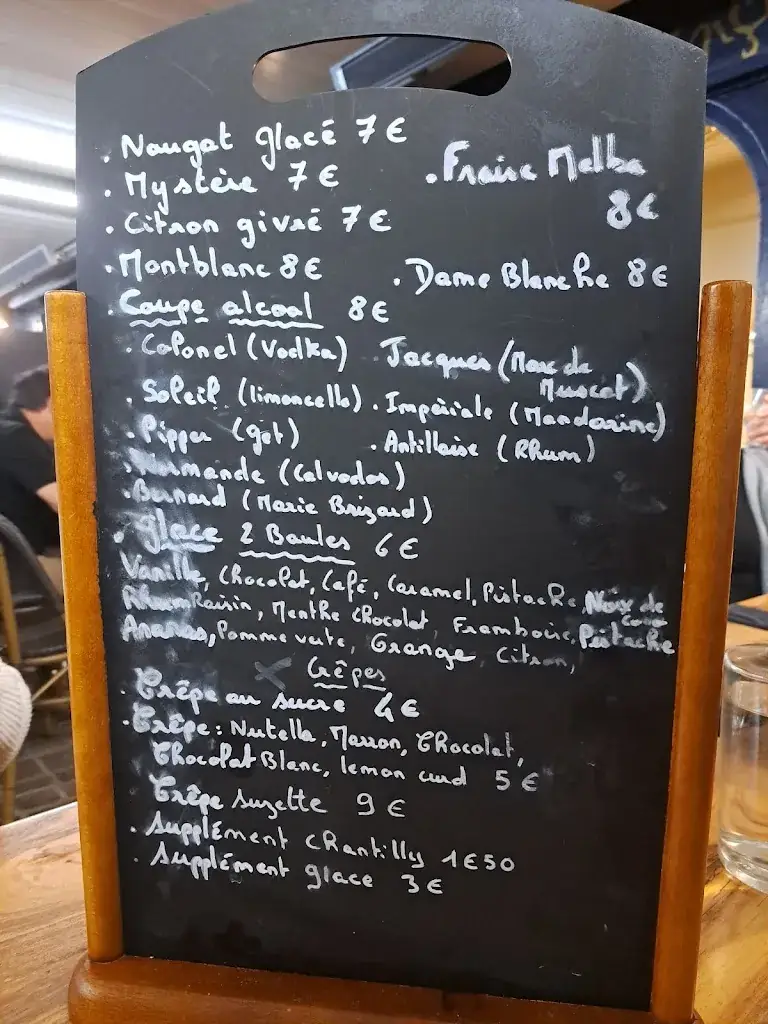 . Nougat glacé 7€
. Mystère 7€
. Fraise Melba
8€
. Citron givré 7€
. Montblanc 8€
. Dame Blanche 8€
. Coupe alcool 8€
. Colonel (Vodka)
. Jacques (Marc de
Muscat)
. Soleil (limoncello)
. Impériale (Mandarine)
. Pipper (get)
. Antillaise (Rhum)
. Normande (Calvados)
. Bernard (Marie Brizard)
. glace 2 Boules 6€
Vanille, Chocolat, Café, Caramel, Pistache, Noix de
coco
Rhum Raisin, Menthe chocolat, Framboise, Pistache
Ananas, Pomme verte, Orange, Citron,
Crêpes
. Crêpe au sucre 4€
. Crêpe: Nutella, Marron, Chocolat,
Chocolat Blanc, lemon curd 5€
Crêpe suzette 9€
. Supplément chantilly 1€50
. Supplément glace 3€